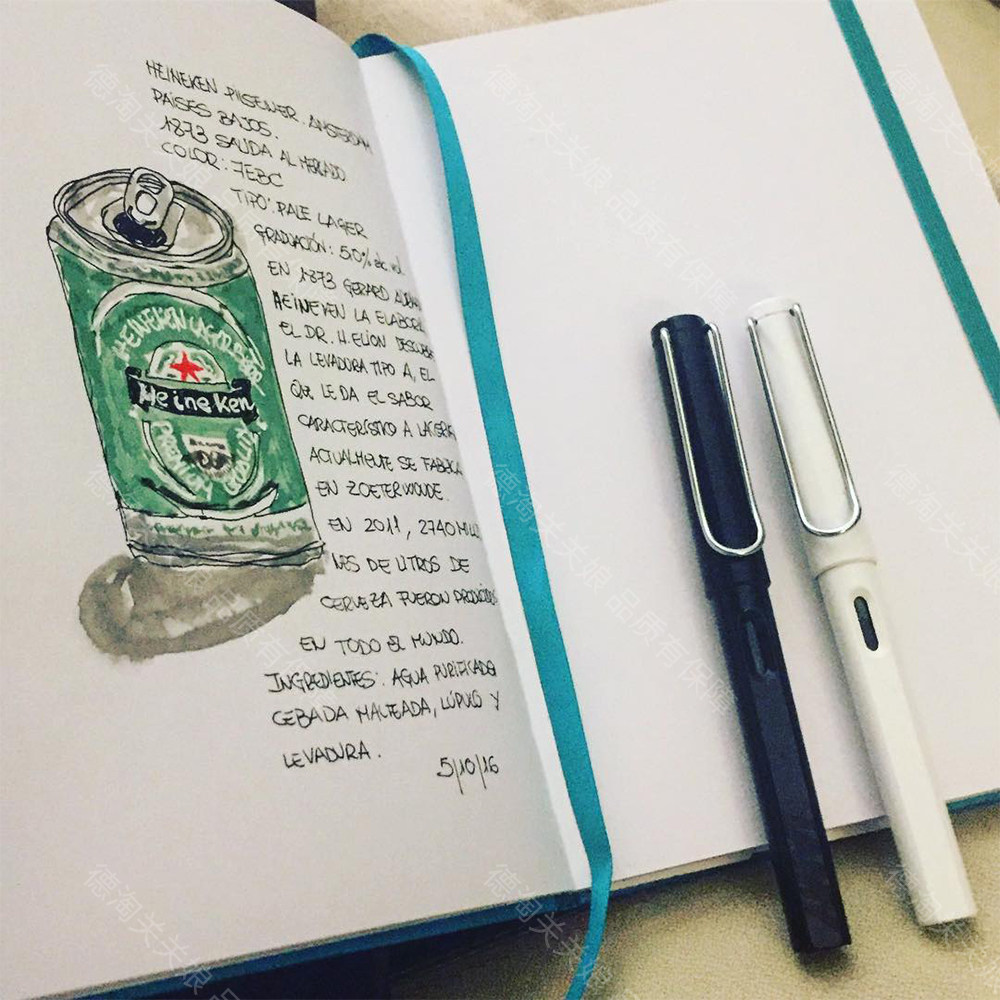 HEINEKEN PILSENER. AMSTERDAM
PAÍSES BAJOS.
1873 SALIDA AL MERCADO
COLOR: 7EBC
TIPO: PALE LAGER
GRADUACIÓN: 5,0% alc. vol.
EN 1873 GERARD
HEINEKEN LA ELABORA
EL DR. H. ELION DESCUBRE
LA LEVADURA TIPO A, EL
QUE LE DA EL SABOR
CARACTERÍSTICO A LA
ACTUALMENTE SE FABRICA
EN ZOETERWOUDE.
EN 2011, 2740 MILLO
NES DE LITROS DE
CERVEZA FUERON PRODUCIDOS
EN TODO EL MUNDO.
INGREDIENTES: AGUA PURIFICADA
CEBADA MALTEADA, LÚPULO Y
LEVADURA.
5/10/16
HEINEKEN LAGER BEER
Heineken
PREMIUM QUALITY
德淘关关娘 品质有保障
德淘关关娘 品质有保障
德淘关关娘 品质有保障
德淘关关娘 品质有保障